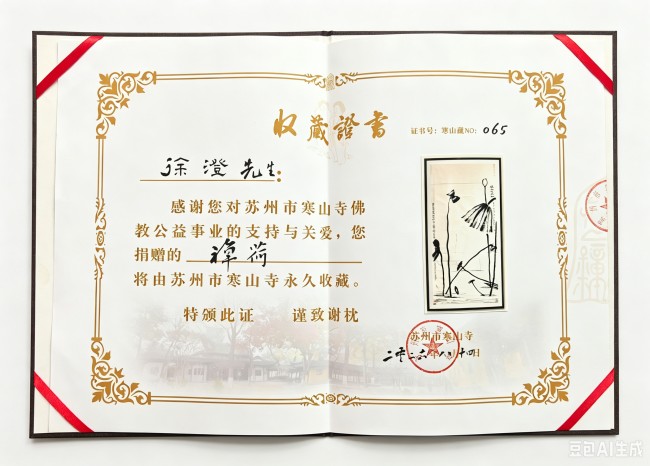 收藏證書
证书号：寒山藏NO：065
徐澄先生：
感谢您对苏州市寒山寺佛
教公益事业的支持与关爱，您
捐赠的 禅荷
将由苏州市寒山寺永久收藏。
特颁此证 谨致谢忱
苏州市寒山寺
豆包AI生成